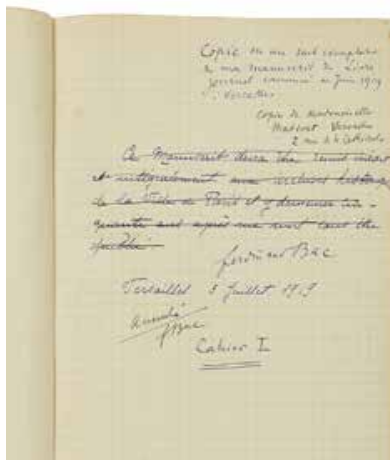 Copie en un seul exemplaire
de mon manuscrit du Livre
journal commencé en Juin 1919
à Versailles
Copie de Mademoiselle
Versailles
2 rue de la Cathédrale
Ce Manuscrit devra être remis intact
et intégralement aux archives
de la Ville de Paris et y demeurer cin-
quante ans après ma mort sans être
publié.
Ferdinand Bac
Versailles 3 Juillet 1919
annulé
FBac
Cahier I